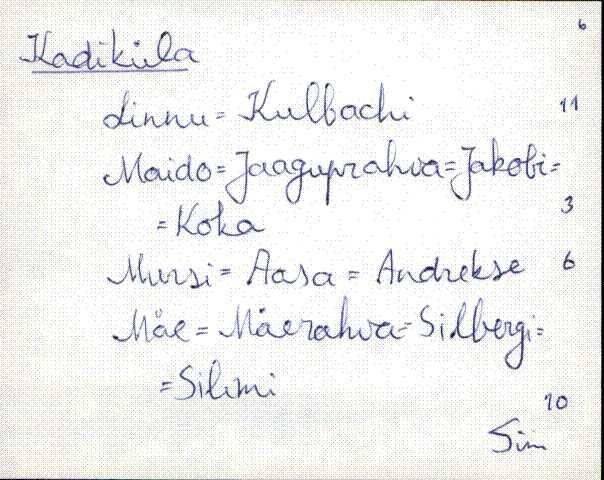 6
Kadiküla
Linnu = Kulbachi 11
Maido = Jaaguprahva = Jakobi =
= Koka 3
Mursi = Aasa = Andrekse 6
Mäe = Mäerahva = Silbergi =
= Silmi
10